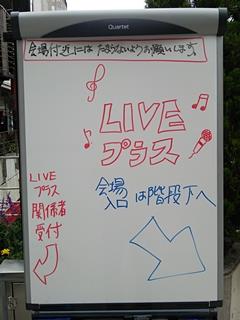 Quartet
会場付近には たまらないようお願いします
LIVE
プラス
LIVE
プラス
関係者
受付
会場
入口は階段下へ